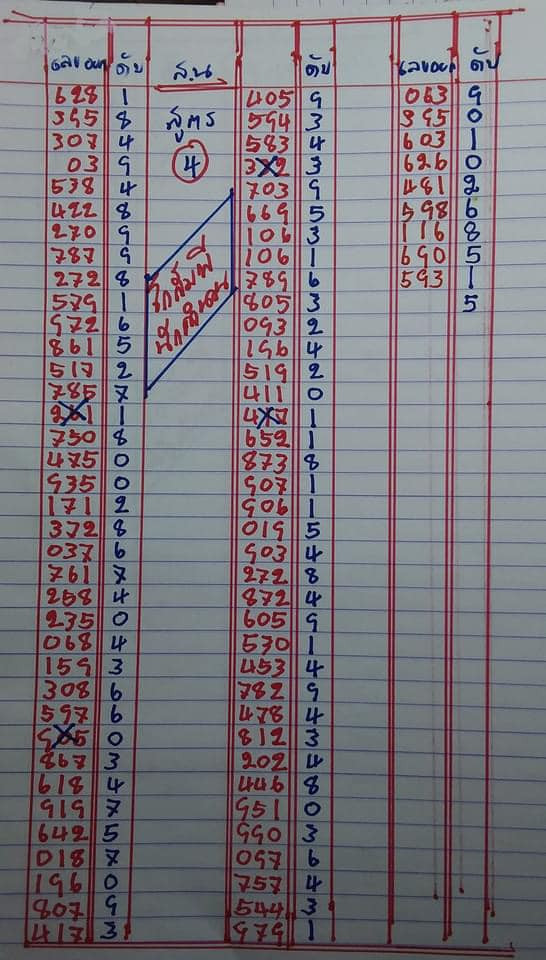 เลขออก ดับ ส.น ดับ เลขออก ดับ
สูตร
4
628 1
395 8
307 4
03 9
538 4
422 8
270 9
787 9
272 8
579 1
972 6
861 5
517 2
785 7
261 1
730 8
475 0
935 0
171 2
372 8
037 6
761 7
258 4
235 0
068 4
159 3
308 6
597 6
965 0
867 3
618 4
919 7
642 5
018 7
196 0
807 9
417 3
405 9
594 3
583 4
3 2 3
703 9
669 5
106 3
106 1
789 6
805 3
093 2
196 4
519 2
411 0
4 7 1
652 1
873 8
907 1
906 1
019 5
903 4
272 8
872 4
605 9
530 1
453 4
782 9
478 4
812 3
202 4
446 8
951 0
990 3
097 6
757 4
544 3
979 1
063 9
395 0
603 1
626 0
481 2
598 6
116 8
690 5
593 1
5